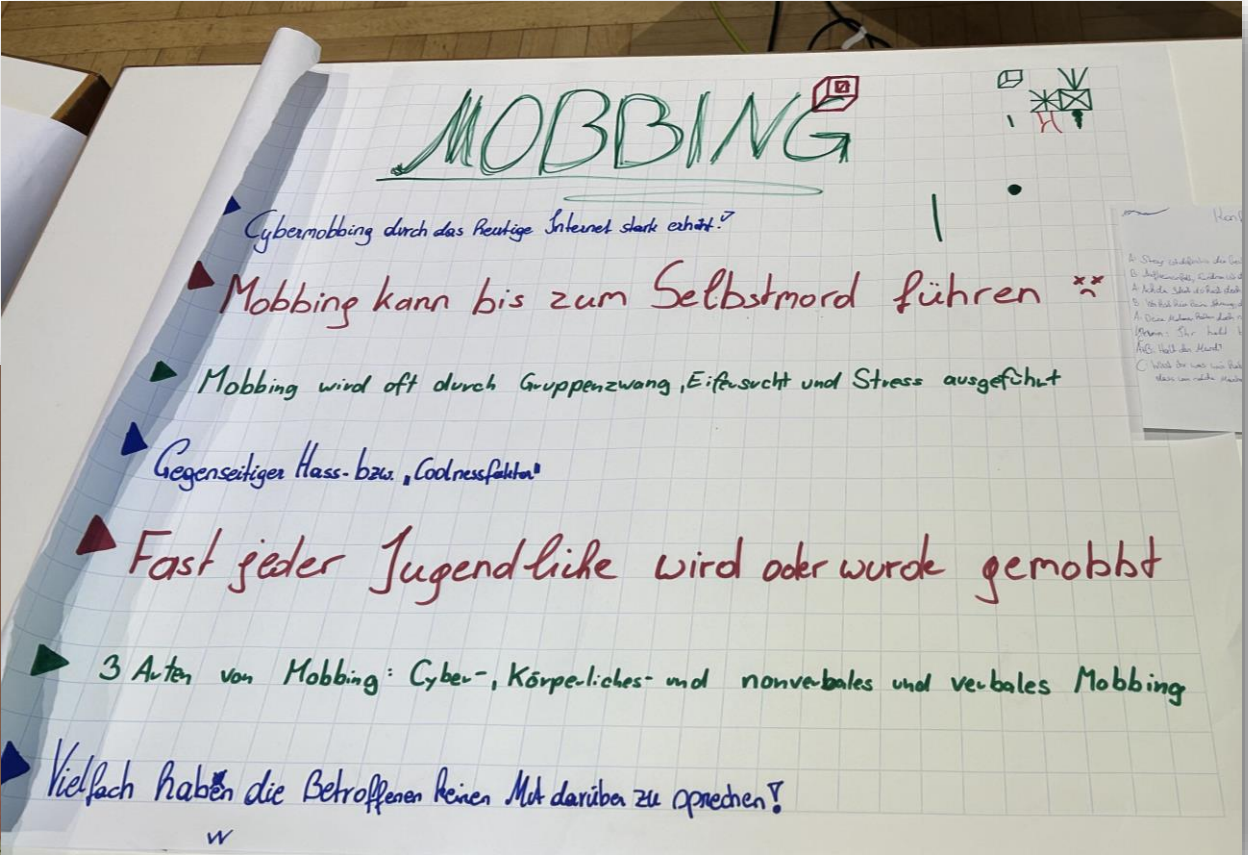 MOBBING
Cybermobbing durch das heutige Internet stark erhöht!
Mobbing kann bis zum Selbstmord führen
Mobbing wird oft durch Gruppenzwang, Eifersucht und Stress ausgeführt
Gegenseitiger Hass- bzw. „Coolnessfaktor"
Fast jeder Jugendliche wird oder wurde gemobbt
3 Arten von Mobbing: Cyber-, Körperliches- und nonverbales und verbales Mobbing
Vielfach haben die Betroffenen keinen Mut darüber zu sprechen!
W